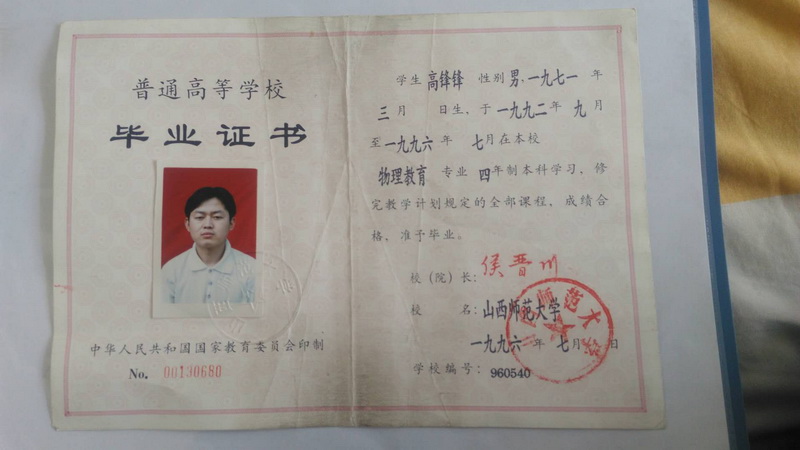 普通高等学校
毕业证书
中华人民共和国国家教育委员会印制
No. 00130680
学生 高锋锋 性别 男,一九七一 年
三 月 日生,于 一九九二 年 九 月
至 一九九六 年 七 月在本校
物理教育 专业 四 年制本科学习、修
完教学计划规定的全部课程,成绩合
格、准予毕业。
校(院)长: 侯晋川
校 名: 山西师范大学
一九九六 年 七 月 日
学校编号: 960540